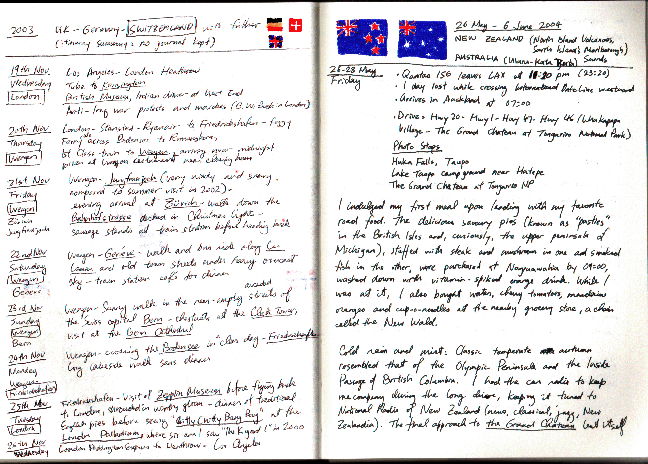 2003 UK - Germany - SWITZERLAND with father
(itinerary summary = no journal kept)
19th Nov
Wednesday
London
Los Angeles - London Heathrow
Tube to Kensington
British Museum, Indian dinner at West End
Anti-Iraq war protests and marches (G.W. Bush in London)
20th Nov
Thursday
Wengen
London - Stansted - Ryanair to Friedrichshafen - foggy
Ferry across Bodensee to Romanshorn,
1st Class train to Wengen arriving near midnight
21st Nov
Friday
Wengen
Zürich
Jungfraujoch
Wengen - Jungfraujoch (very windy and snowy
compared to summer visit in 2002) -
evening arrival at Zürich - walk down the
Bahnhofstrasse decked in Christmas lights -
sausage stands at train station before heading back
22nd Nov
Saturday
Wengen
Genève
Wengen - Genève - walk and bus ride along Lac
Leman and old town streets under overcast
sky - train station cafe for dinner
23rd Nov
Sunday
Wengen
Bern
Wengen - Snowy walk in the near-empty streets of
the Swiss capital Bern - chestnuts at the Clock Tower,
visit at the Bern Cathedral
24th Nov
Monday
Wengen
Friedrichshafen
Wengen - crossing the Bodensee in clear day - Friedrichshafen
Long lakeside walk sans dinner
25th Nov
Tuesday
London
Friedrichshafen - visit of Zeppelin Museum before flying back
to London, shrouded in wintry gloom - dinner of traditional
English pies before seeing "Chitty Chitty Bang Bang" at the
London Palladium, where sir and I saw "The King and I" in 2000
26th Nov
Wednesday
London Paddington Express to Heathrow - Los Angeles
26 May - 6 June 2004
NEW ZEALAND (North Island Volcanoes,
South Island's Marlborough Sounds
AUSTRALIA (Uluru-Kata Tjuta)
26-28 May
Friday
· Qantas 156 leaves LAX at 11:20 pm (23:20)
· 1 day lost while crossing International Date Line westward
· Arrives in Auckland at 07:00
· Drive: Hwy 20 - Hwy 1 - Hwy 47 - Hwy 48 (Whakapapa
Village - The Grand Chateau at Tongariro National Park)
Photo Stops
Huka Falls, Taupo
Lake Taupo campground near Hatepe
The Grand Chateau at Tongariro NP
I indulged my first meal upon landing with my favorite
road food. The delicious savoury pies (known as "pasties"
in the British Isles and, curiously, the upper peninsula of
Michigan), stuffed with steak and mushroom in one and smoked
fish in the other, were purchased at Ngaruawahia by 09:00,
washed down with vitamin-spiked orange drink. While I
was at it, I also bought water, cherry tomatoes, mandarin
oranges and cup-o-noodles at the nearby grocery store, a chain
called the New World.
Cold rain and mist: Classic temperate autumn
resembled that of the Olympic Peninsula and the Inside
Passage of British Columbia. I had the car radio to keep
me company during the long drive, keeping it tuned to
National Radio of New Zealand (news, classical, jazz, New
Zealandia). The final approach to the Grand Chateau (and itself